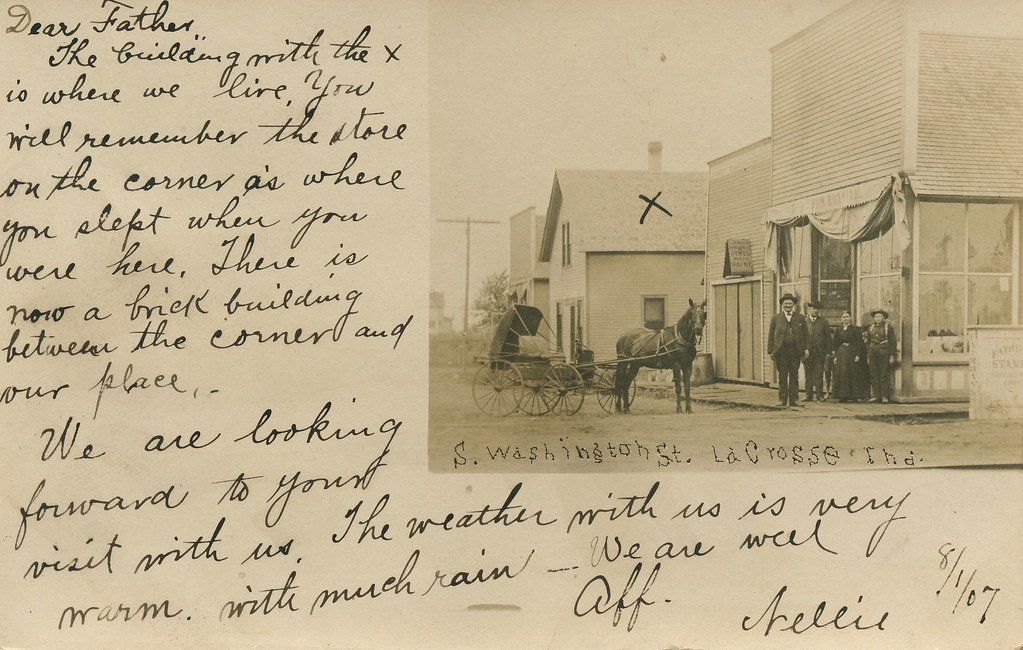 Dear Father,
The building with the x
is where we live. You
will remember the store
on the corner as where
you slept when you
were here. There is
now a brick building
between the corner and
our place. -
We are looking
forward to your
visit with us. The weather with us is very
warm. with much rain — We are well
Aff.
Nellie
8/1/07
X
S. Washington St. La Crosse Ind.